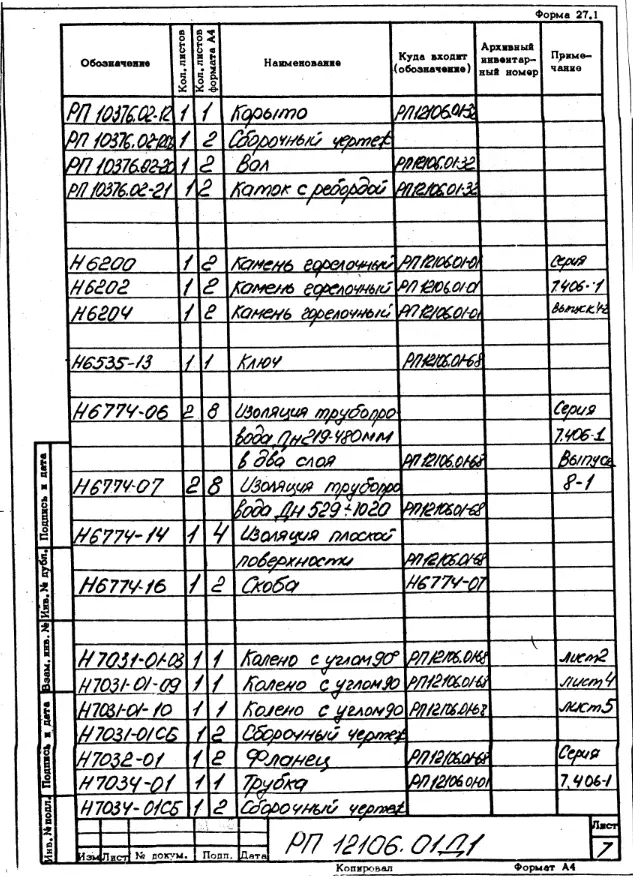 Форма 27.1
Обозначение Кол. листов Кол. листов формата А4 Наименование Куда входит (обозначение) Архивный инвентар- ный номер Приме- чание
РП 10376.02-12 1 1 Корыто РП12106.01-32
РП 10376.02-20СБ 1 2 Сборочный чертеж
РП 10376.02-20 1 2 Вал РП12106.01-32
РП 10376.02-21 1 2 Каток с ребордой РП12106.01-32
Н6200 1 2 Камень горелочный РП12106.01-01 Серия
Н6202 1 2 Камень горелочный РП12106.01-01 7.406-1
Н6204 1 2 Камень горелочный РП12106.01-01 Выпуск
Н6535-13 1 1 Ключ РП12106.01-68
Н6774-06 2 8 Изоляция трубопро Серия
вода Дн219-480мм 7.406-1
в два слоя РП12106.01-68 Выпуск
Н6774-07 2 8 Изоляция трубопро 8-1
вода Дн 529÷1020 РП12106.01-68
Н6774-14 1 4 Изоляция плоской
поверхности РП12106.01-68
Н6774-16 1 2 Скоба Н6774-07
Н7031-01-03 1 1 Колено с углом 90° РП12106.01-68 лист2
Н7031-01-09 1 1 Колено с углом 90 РП12106.01-68 лист4
Н7031-01-10 1 1 Колено с углом 90 РП12106.01-68 лист5
Н7031-01СБ 1 2 Сборочный чертеж
Н7032-01 1 2 Фланец РП12106.01-68 Серия
Н7034-01 1 1 Трубка РП12106.01-01 7.406-1
Н7034-01СБ 1 2 Сборочный чертеж
Инв. № подл. Подпись и дата Взам. инв. № Инв. № дубл. Подпись и дата
Изм Лист № докум. Подп. Дата
РП 12106.01Д1
Лист
7
Копировал Формат А4